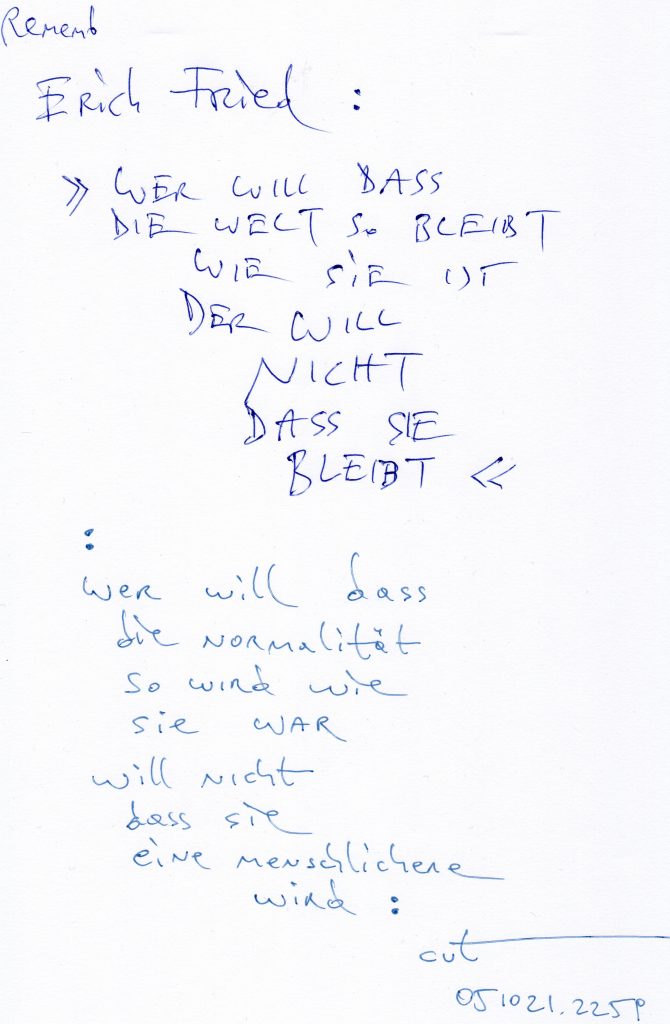 Rememb
Erich Fried :
» WER WILL DASS
DIE WELT SO BLEIBT
WIE SIE IST
DER WILL
NICHT
DASS SIE
BLEIBT «
:
wer will dass
die normalität
so wird wie
sie WAR
will nicht
dass sie
eine menschlichere
wird :
cut
051021.2259